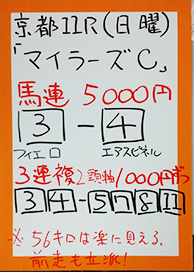 京都11R(日曜)
「マイラーズC」
馬連 5000円
3-4
フィエロ エアスピネル
3連複2頭軸1000円ずつ
34-57811
※56キロは楽に見える。
前走も立派!